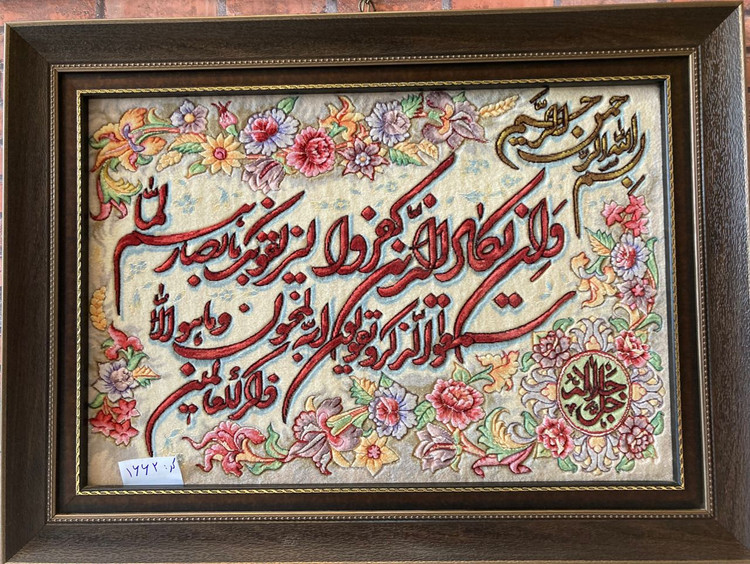 بسم الله الرحمن الرحیم
وان یکاد الذین کفروا لیزلقونک بابصارهم لما
سمعوا الذکر و یقولون انه لمجنون وما هو الا
ذکر للعالمین
جل جلاله
کد: ۱۶۶۲